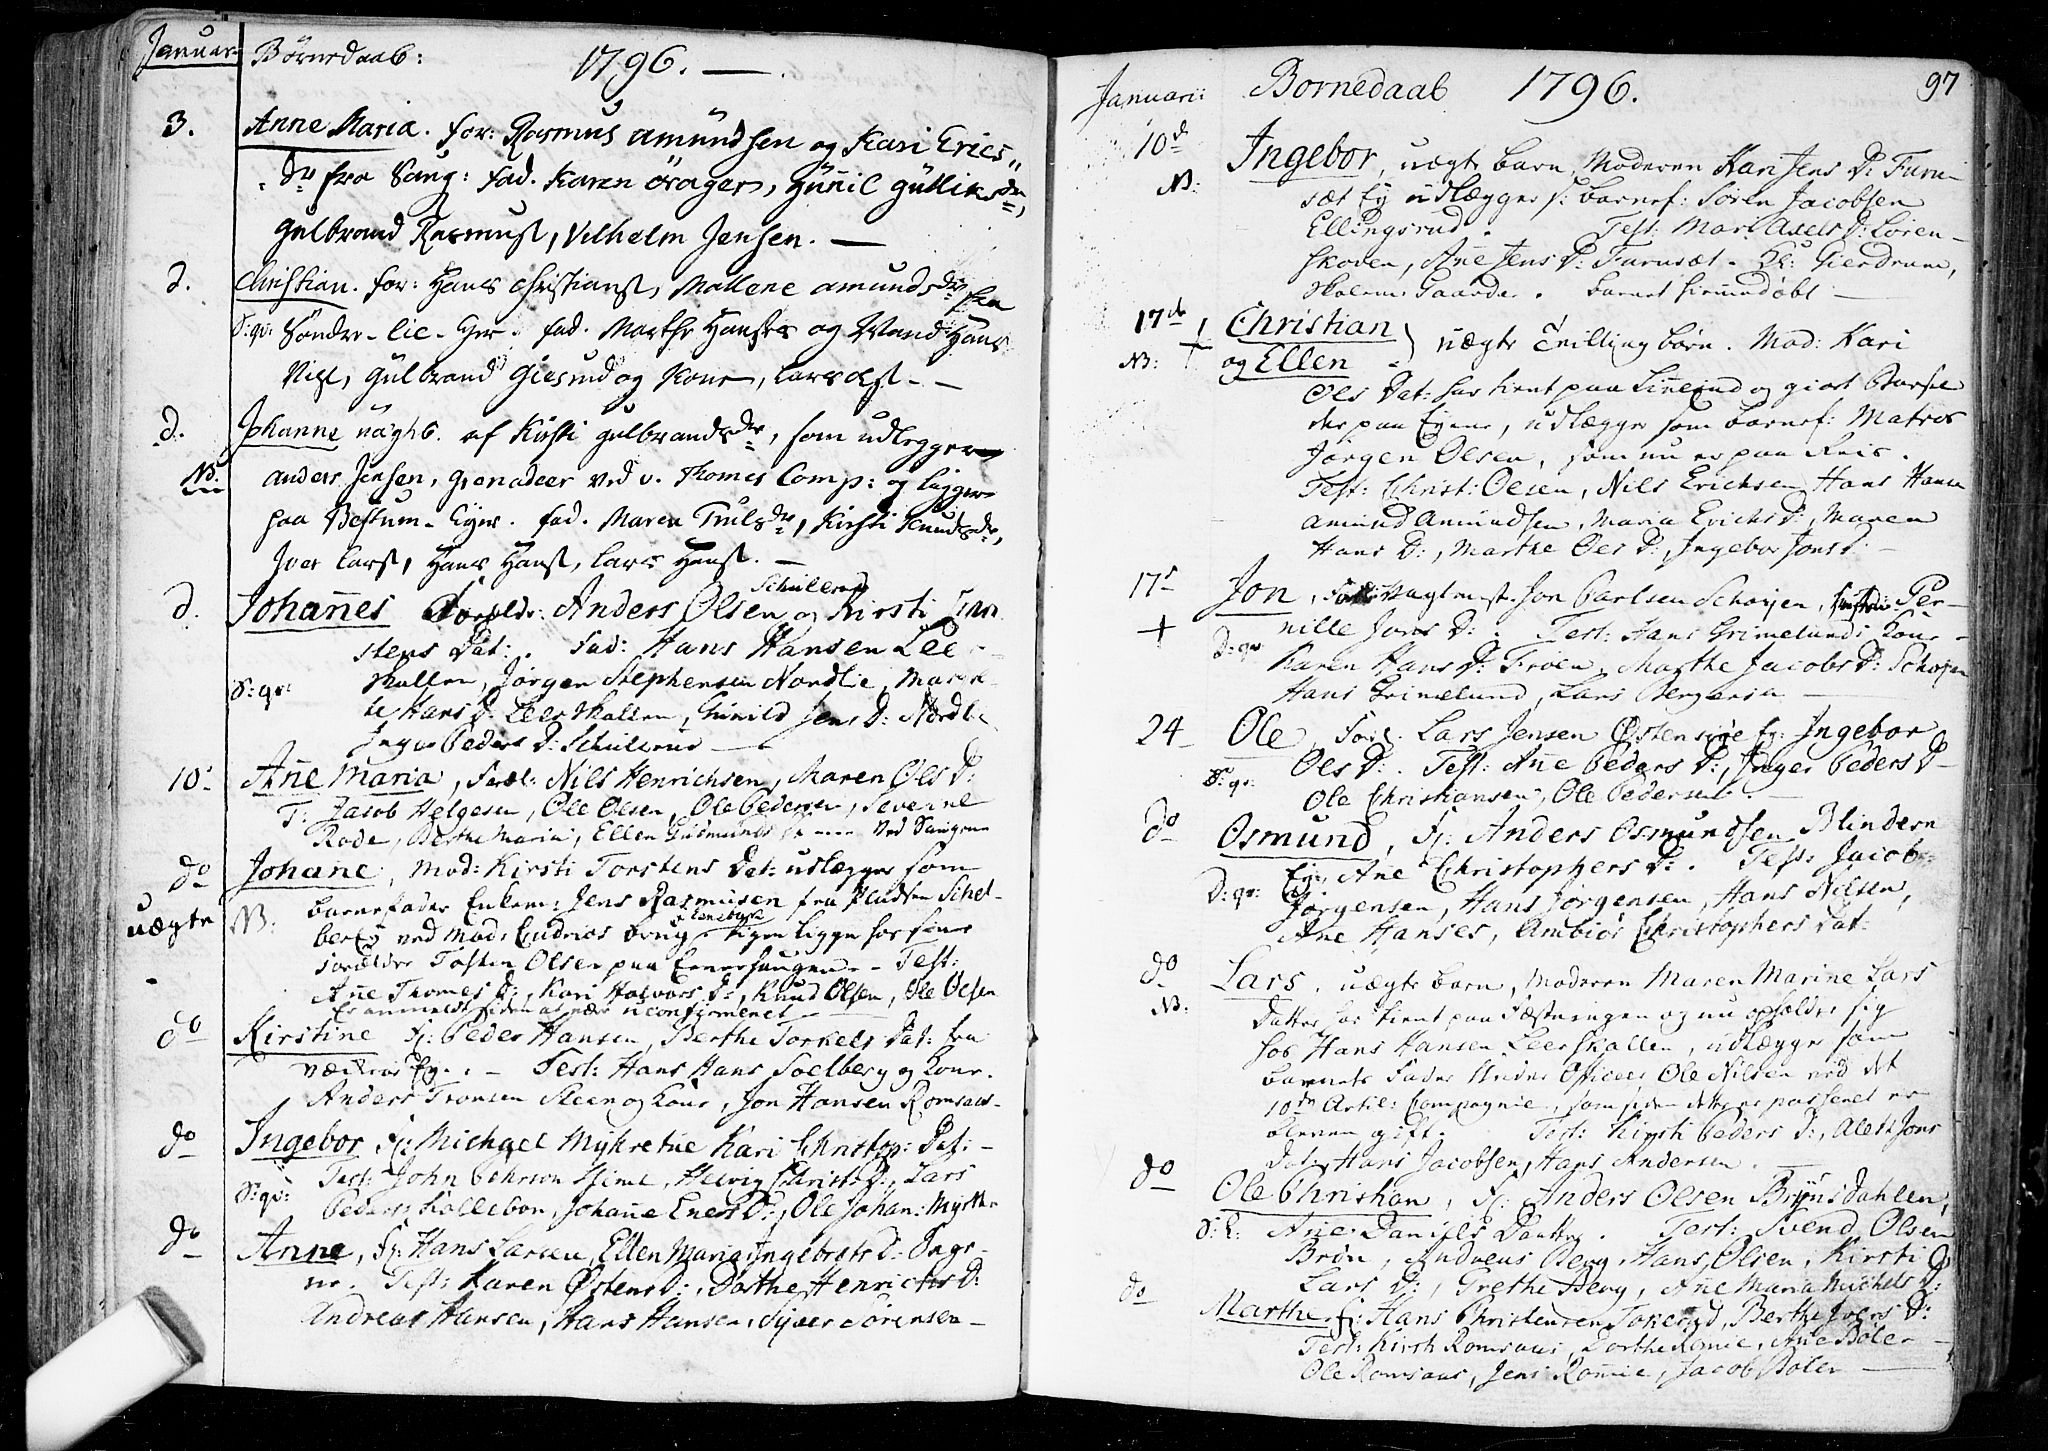 Januar Børnedaab: 1796. —
3. Anne Maria. for: Rasmus Amundsen og Kari Erics„
dr fra Saug: fad. Karen Örager, Guñil Gulliksdr,
Gulbrand Rasmusf, Vilhelm Jensen. —
d. Christian. for: Hans Christiansf, Mallene Amundsdr fra
Søndre-lie-Eyer. fad. Marthe
Nilsf, Gulbrand Giesrud og Kone, Lars Olsf. —
d. Johanne uägtb. af Kirsti Gulbrandsdr, som udlegger
NB. Anders Jensen, Grenadeer ved v. Thomes Comp: og ligger
paa Bestum-Eyer. fad. Maren Trulsdr, Kirsti Knudsdr,
Iver Larsf, Hans Hansf, Lars Hansf. —
d. Johañes Foreldr: Anders Olsen Schullerud og Kirsti
stens Dat: . Fad: Hans Hansen Lee
D: qv: skallen, Jørgen Stephensen Nordlie, Mar
te Hans D: Leerskallen, Guñild Jens D: Nordl
Inger Peders D: Schullerud —
10. Añe Maria, Foræl: Nils Henrichsen, Maren Ols D:
T: Jacob Helgesen, Ole Olsen, Ole Pedersen, Severine
Rode, Berthe Maria, Ellen Gudmunds D: ved Saugene
do Johañe, Mod: Kirsti Torstens Dat: udlægger som
uægte NB: barnefader Enkem: Jens Rasmusen fra Pladsen Schel-
berEy ved Mads Gudrios brug
forældre Tosten Olsen paa — Test:
Añe Thomes D:, Kari Halvors D:, Knud Olsen, Ole Olsen
Er anmeldt siden at være uconfirmeret
do Kirstine f: Peder Hansen, Berthe Torkels Dat: fra
Ey. : — Test: Hans Hans Soelberg og Kone.
Anders Tronsen Steen og Kone, Jon Hansen Romsaas-
do Ingebor f: Michael Myhretue Kari Christop: Dat: —
D: qv: Test: John Hiemé, Helvig Christ: D:, Lars
Peders: Kallebon, Johañe Eners D:, Ole Johan: Myhre
do Anne, f: Hans Larsen, Ellen Maria Ingebrets D:
Test: Karen Østens D:, Dorthe Henrichs D:
Andreas Hansen, Hans Hansen, Syver Sørensen —
Januari: Bornedaab 1796. 97
10de Ingebor, uægte barn, Moderen Kari Jens D: Furu-
NB: sæt Ey udlægger s: barnef: Søren Jacobsen
Ellingsrud. Test: Mari Axels D: Løren-
skoven, Añe Jens D: Furusæt - Ol: Gierdrum,
Gaarder. barnet hiemmedøbt —
17de † Christian
NB: † og Ellen } uægte Tvillingbørn. Mod: Kari
Ols Dat: har tient paa Linerud og giort Barsel
der paa Eyene, udlægger som barnef: Matros
Jørgen Olsen, som nu er paa Reis.
Test: Christ: Olsen, Nils Erichsen, Hans Hansen
Amund Amundsen, Maria Erichs D:, Maren
Hans D:, Marthe Ols D:, Ingebor Jons D: —
17de Jon, Fader Vagtmest. Jon Carlsen Schøyen, Per-
† D: qv nille Jons D: . Test: Hans Grimelunds Kone -
Karen Hans D: Frøen, Marthe Jacobs D: Schøyen
Hans Grimelund, Lars Bergersen —
24 Ole, Foræl. Lars Jensen Østensiøe Ey: Ingebor
D: qv: Ols D: . Test: Añe Peders D:, Inger Peders D
Ole Christiansen, Ole Pedersen. —
do Osmund, f: Anders Osmundsen Blindern
Ey: Añe Christophers D: . Test: Jacob
D: qv: Jørgensen, Hans Jørgensen, Hans Nilsen,
Añe Hanses, Ambiør Christophers Dat:
do Lars, uægte barn, Moderen Maren Marine Lars
NB: Datter har tient paa Fæstningen og nu opholder sig
hos Hans Hansen Leerskallen, udlægger som
barnets Fader Under Officeer Ole Nilsen ved det
10de Artil: Compagnie, som siden dette er passeret er
bleven gift. Test: Kirsti Peders D:, Aleth Jons
Dat: Hans Jacobsen, Hans Andersen. —
do Ole Christian, f: Anders Olsen Bryns Dahlen,
Añe Daniels Datter. Test: Svend Olsen
Brøn, Andreas Berg, Hans Olsen, Kirsti
Lars D:, Grethe Berg, Añe Maria Michels D:
do Marthe f: Hans Christensen Tokerud, Berthe Ivers D:
Test: Kirsti Romsaas, Dorthe Romie, Añe Bøler —
Ole Romsaas, Jens Romie, Jacob Bøler —